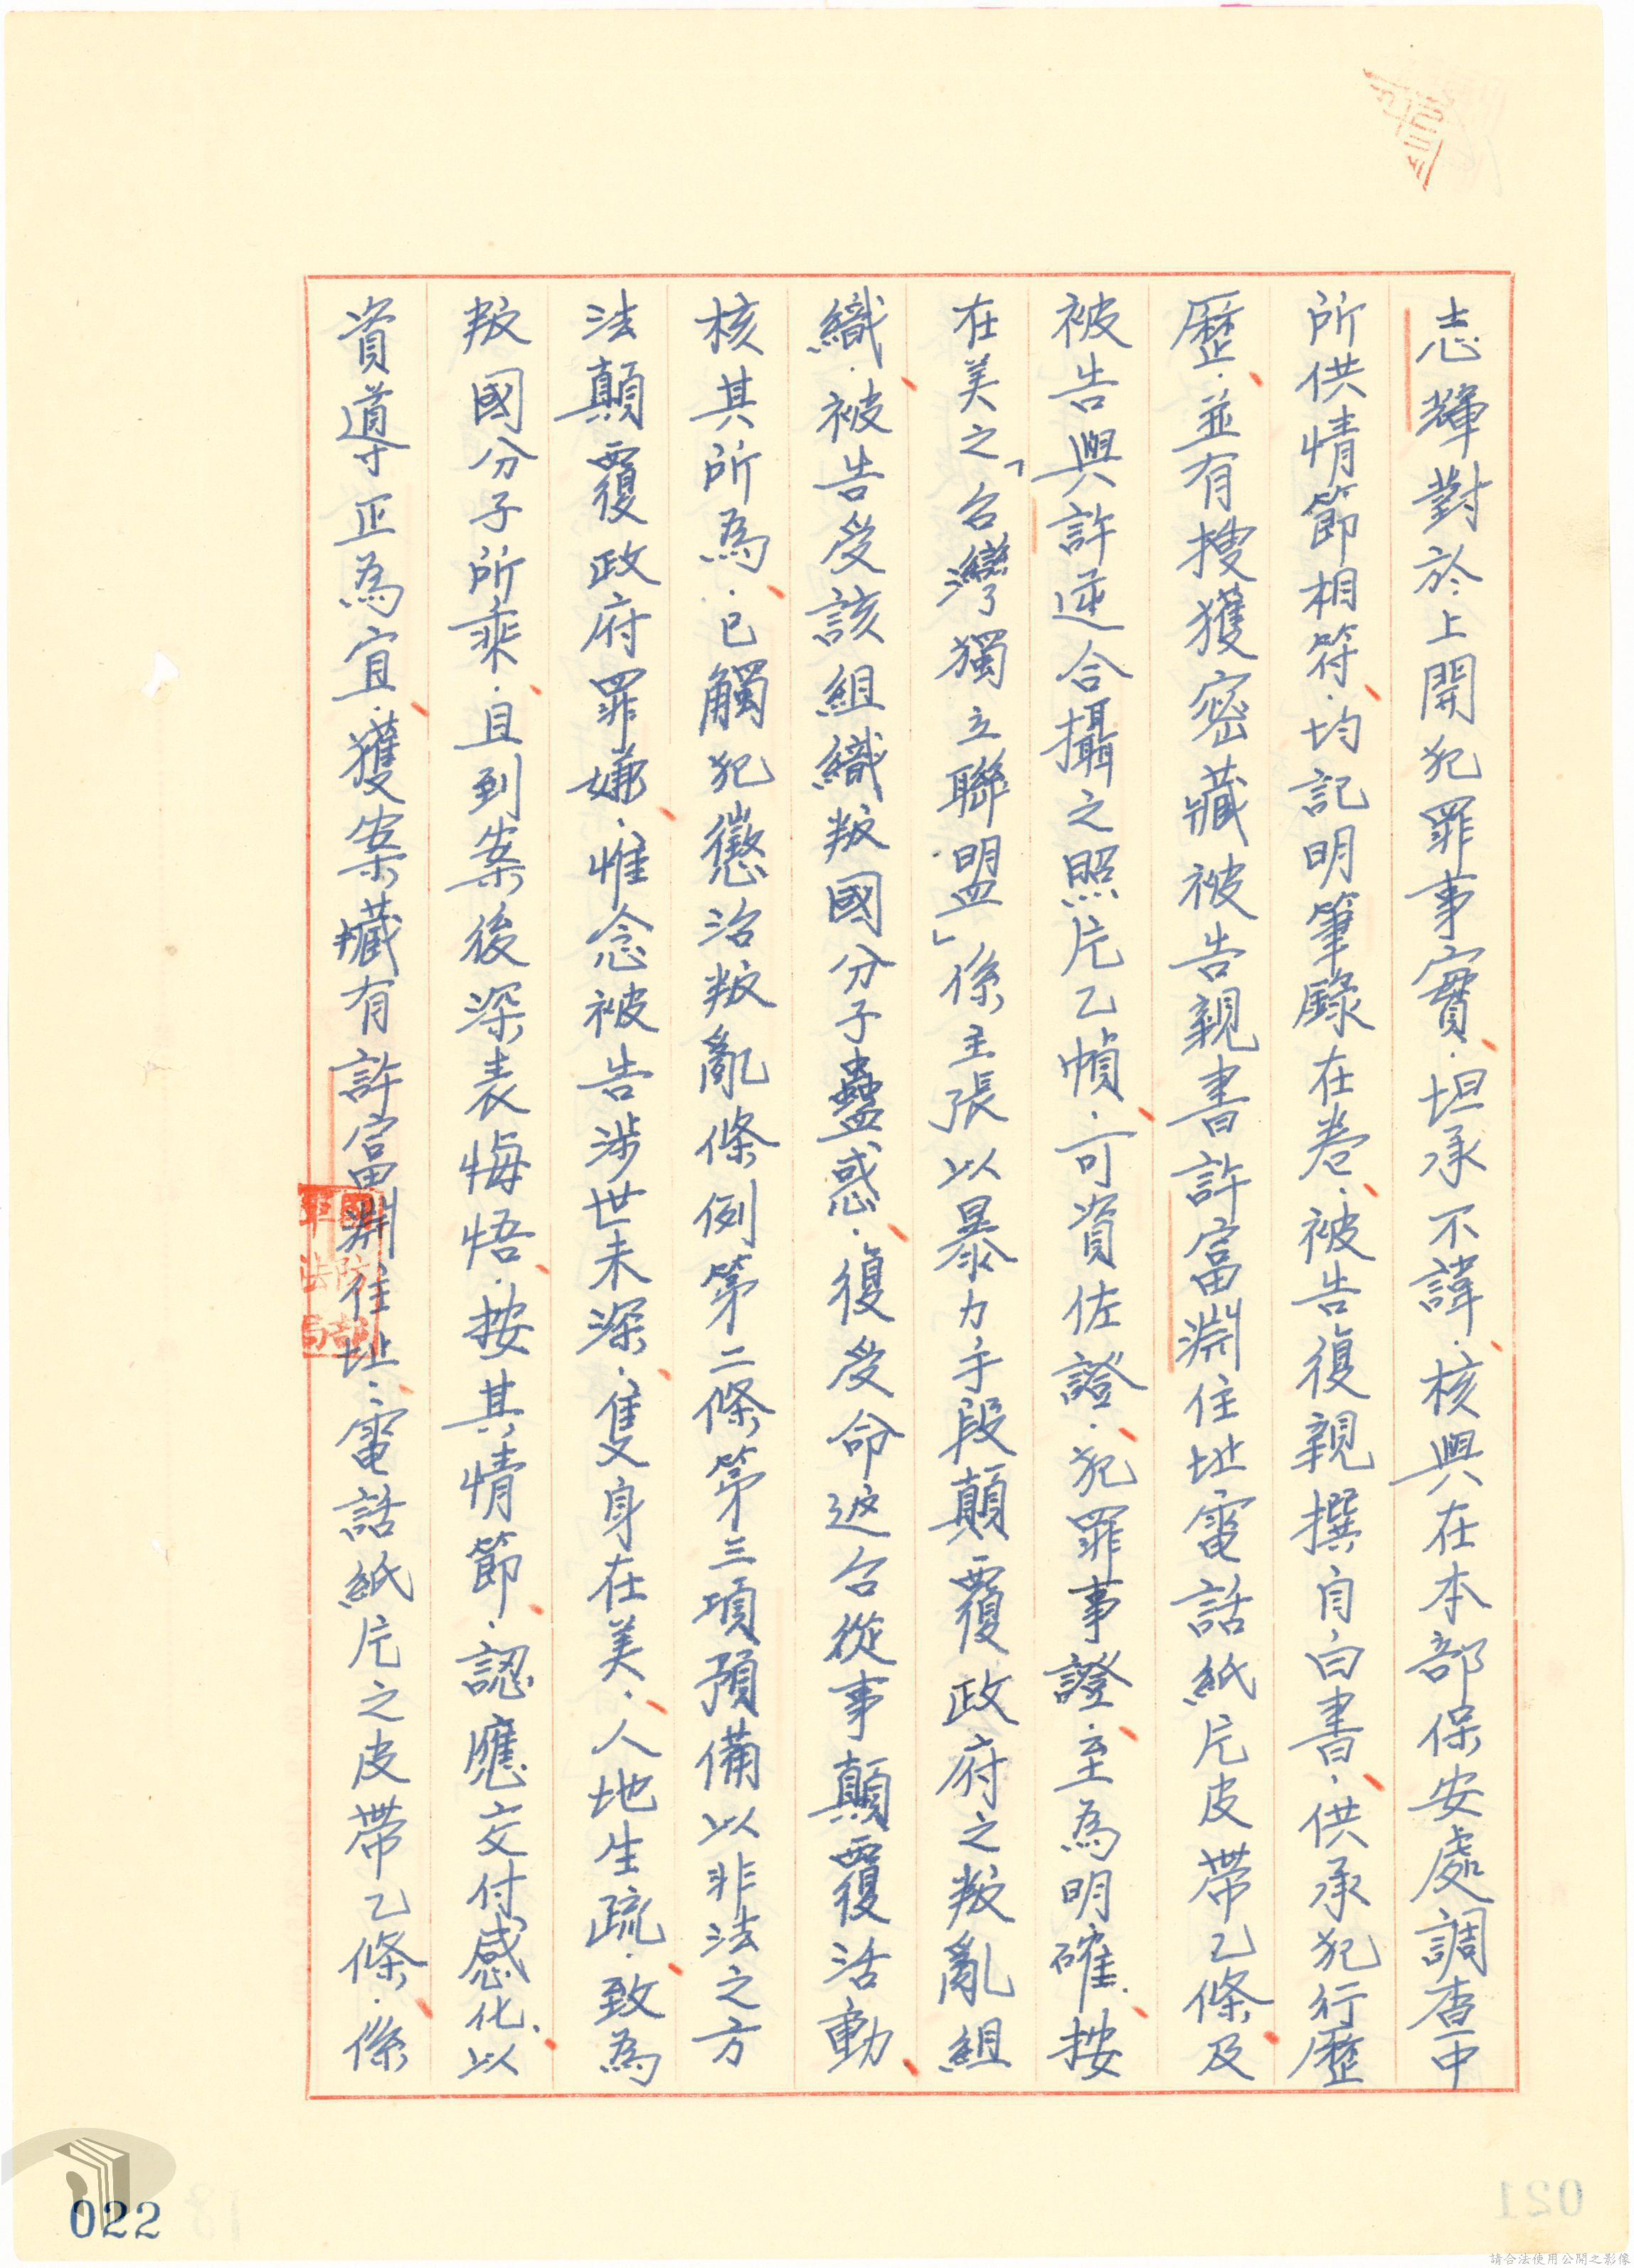 志輝對於上開犯罪事實、坦承不諱、核與在本部保安處調查中
所供情節相符、均記明筆錄在卷、被告復親撰自白書、供承犯行歷
歷、並有搜獲密藏被告親書許富淵住址電話紙片皮帶乙條及
被告與許逆合攝之照片乙幀、可資佐證、犯罪事證至為明確、按
在美之「台灣獨立聯盟」係主張以暴力手段顛覆政府之叛亂組
織、被告受該組織叛國分子蠱惑、復受命返台從事顛覆活動、
核其所為、已觸犯懲治叛亂條例第二條第三項預備以非法之方
法顛覆政府罪嫌、惟念被告涉世未深、隻身在美、人地生疏、致為
叛國分子所乘、且到案後深表悔悟、按其情節、認應交付感化、以
資導正為宜、獲案藏有許富淵住址、電話紙片之皮帶乙條、係
國防部
軍法局
022
021
請合法使用公開之影像